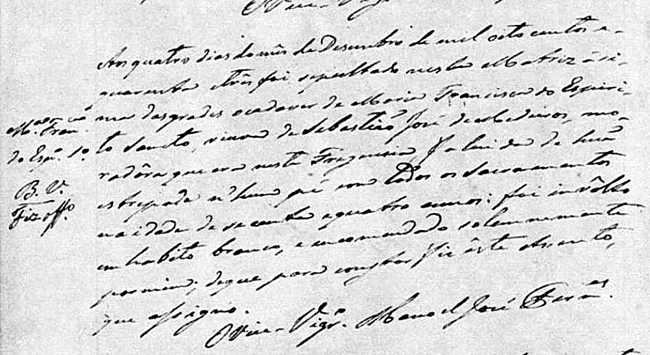 O Vice-Vigr.
Aos quatro dias do mês de Desembro de mil oito centos e-
quarenta e três foi sepultado nesta Matriz acì-
ma das grades o cadaver de Maria Francisca do Espiri-
to Sancto, viuva de Sebastião José de Medeiros, mo-
radôra que era nesta Freguezia faleceu de hũa
estrepada n'hum pé com todos os Sacramentos
na idade de secenta e quatro annos: foi invôlto
em habito branco, e encomendado solemnemente
por mim; de que para constar fiz êste Assento,
que assigno.
O Vice-Vigr.o Manoel José Fern.es
Ma. Fran.ca
do Esp.o S.o
B. V.
Fez off.o